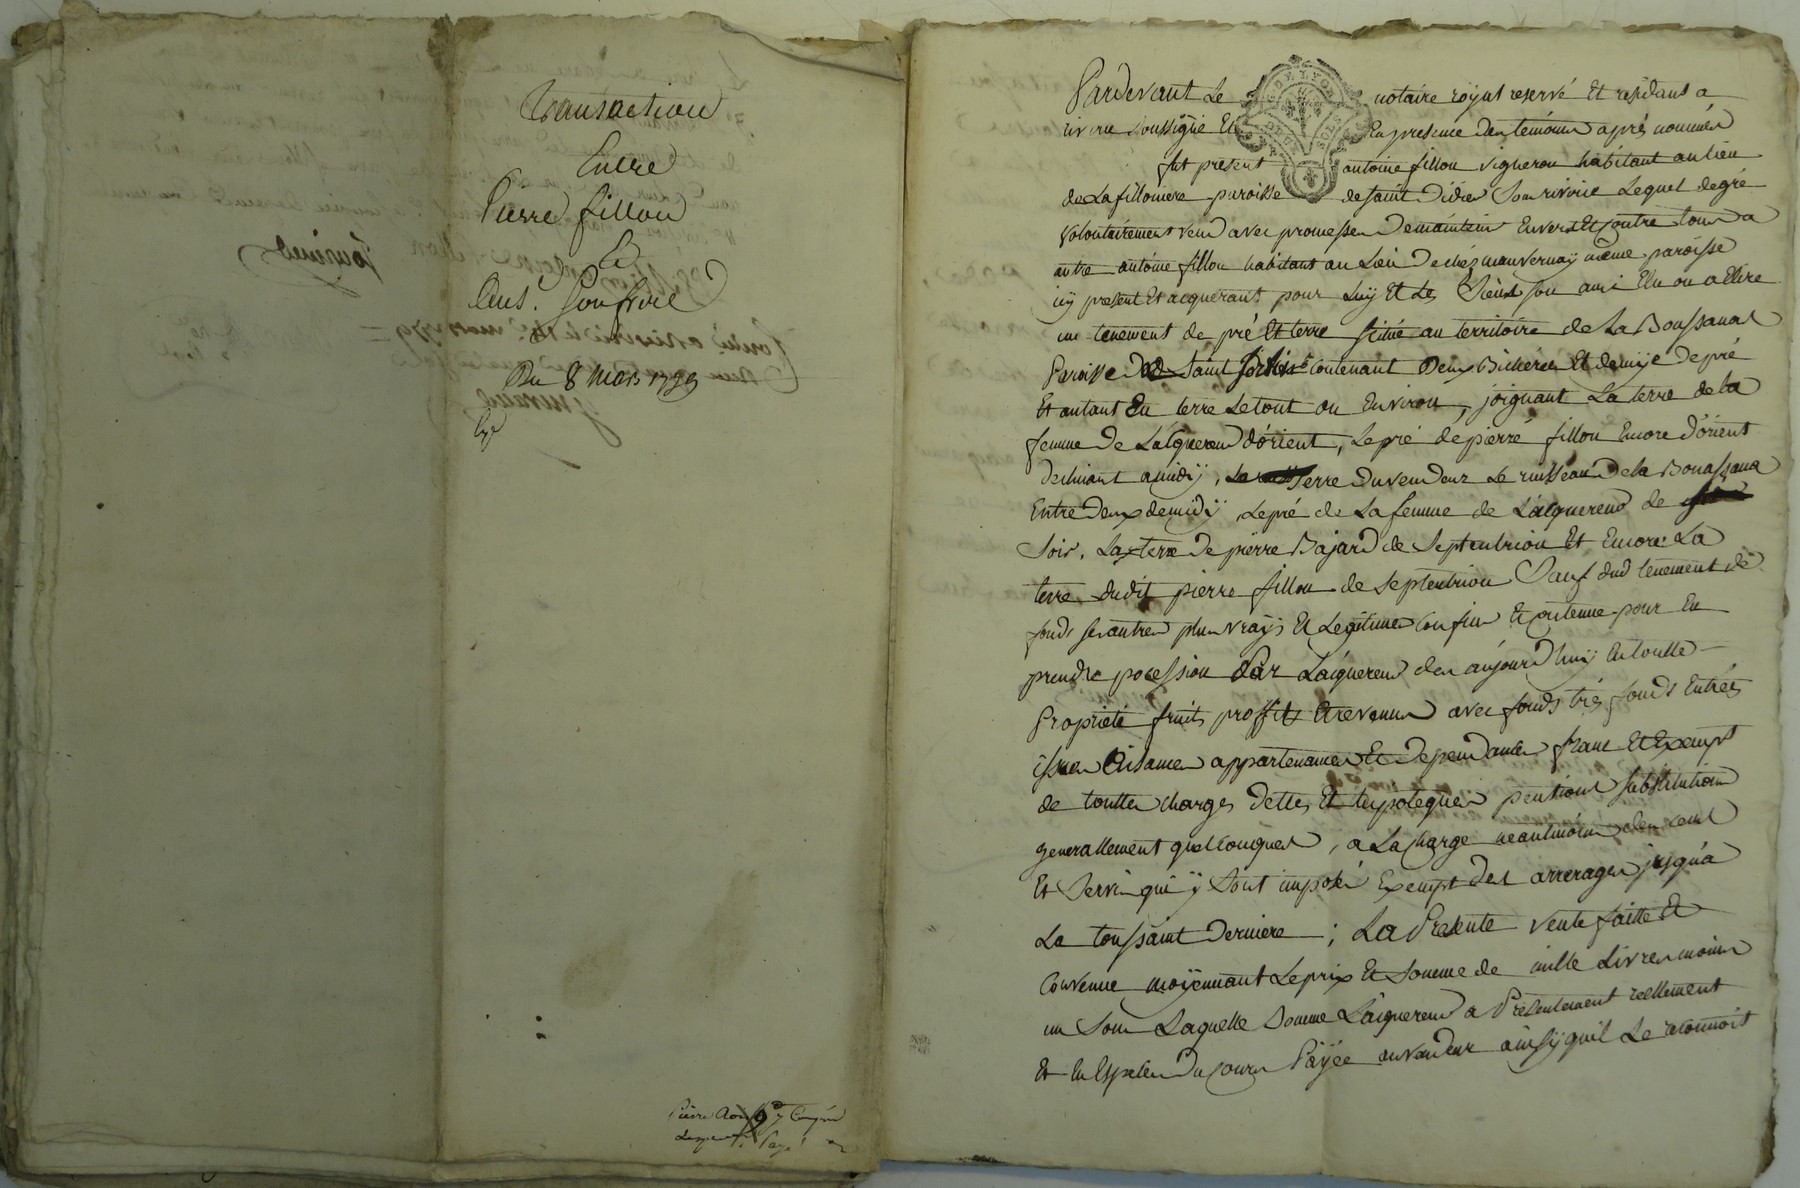 Transaction
Entre
Pierre fillon
Et
Ans. Goufroid
Du 8 mars 1779
Pardevant Le notaire royal reservé Et residant a
riverie soussigné Et En presence des temoins aprés nommés
fut present antoine fillon vigneron habitant au lieu
de La fillonniere paroisse de saint Didier sous riverie Lequel de gré
volontairement vend avec promesses De maintenir Envers Et contre tous a
autre antoine fillon habitant au Lieu De chéz manvernaÿ même paroisse
icy present Et acquerant pour Luÿ Et Les siens son ami Elu ou a Elire
un tenement de pré Et terre situé au territoire de La Boussanas
Paroisse de Saint contenant Deux Bicherées Et demÿe De pré
Et autant En terre Le tout ou Environ, joignant La terre de la
femme De L'aiquereur d'orient, Le pré de pierre fillon Encore d'orient
declinant a midÿ, La terre Du vendeur Le ruisseau De la Bouassana
Entre Deux de midÿ, Le pré de La femme de L'aiquereur de
Soir, La terre De pierre Bajard de Septentrion Et Encore La
terre dudit pierre fillon de septentrion Sauf dud tenement de
fonds ses autres plus vraÿs Et Legitimes confins Et contenue pour En
prendre pocession Par L'aiquereur des aujourd'huÿ En toutte
Propriété fruits proffits Et revenus avec fonds trés fonds Entrées
issues Aisances appartenances Et dependances franc Et Exempt
de touttes charges Dettes Et hÿpoteques pentions substitutions
generallement quelconques, a La charge neantmoins des cens
Et Servis qui ÿ sont imposés Exempt des arrerages jusqu'a
La toussaint Derniere; La Presente vente faitte Et
Convenue moÿennant Le prix Et somme de mille Livres moins
un Sou Laquelle somme L'aiquereur a Presentement rëellement
Et En Especes Du cours Païÿée au vendeur ainsÿ qu'il Le reconnoit